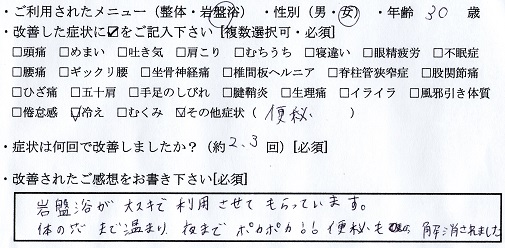 ・ご利用されたメニュー（整体・岩盤浴） ・性別（男・女）・年齢 30 歳
・改善した症状に☑をご記入下さい [複数選択可・必須]
□頭痛 □めまい □吐き気 □肩こり □むちうち □寝違い □眼精疲労 □不眠症
□腰痛 □ギックリ腰 □坐骨神経痛 □椎間板ヘルニア □脊柱管狭窄症 □股関節痛
□ひざ痛 □五十肩 □手足のしびれ □腱鞘炎 □生理痛 □イライラ □風邪引き体質
□倦怠感 ☑冷え □むくみ ☑その他症状（ 便秘、 ）
・症状は何回で改善しましたか？（約 2、3 回）[必須]
・改善されたご感想をお書き下さい[必須]
岩盤浴が大スキで利用させてもらっています。
体の穴まで温まり 夜までポカポカ 便秘も 解消されました